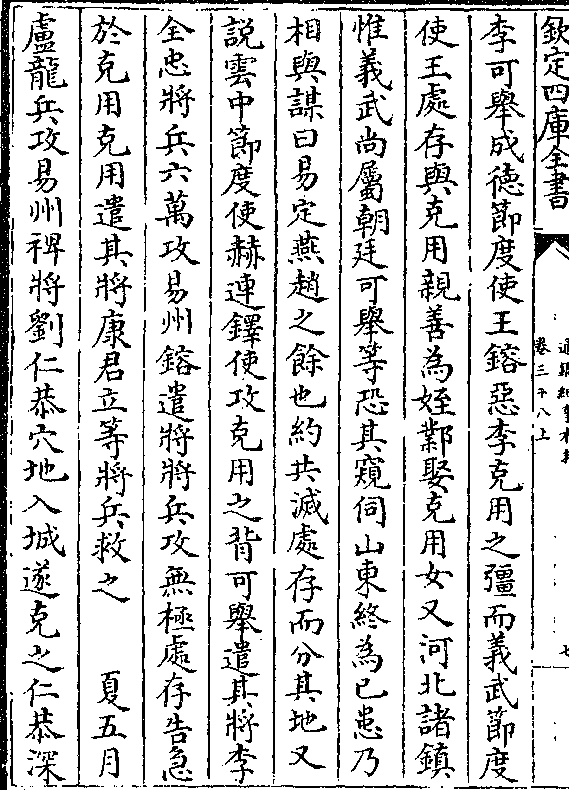 欽定四庫全書
通鑑紀事本末
卷三十八上
七
李可舉成德節度使王鎔惡李克用之彊而義武節度
使王處存與克用親善為姪鄴娶克用女又河北諸鎮
惟義武尚屬朝廷可舉等恐其窺伺山東終為己患乃
相與謀曰易定燕趙之餘也約共滅處存而分其地又
說雲中節度使赫連鐸使攻克用之背可舉遣其將李
全忠將兵六萬攻易州鎔遣將將兵攻無極處存告急
於克用克用遣其將康君立等將兵救之　夏五月
盧龍兵攻易州裨將劉仁恭穴地入城遂克之仁恭深